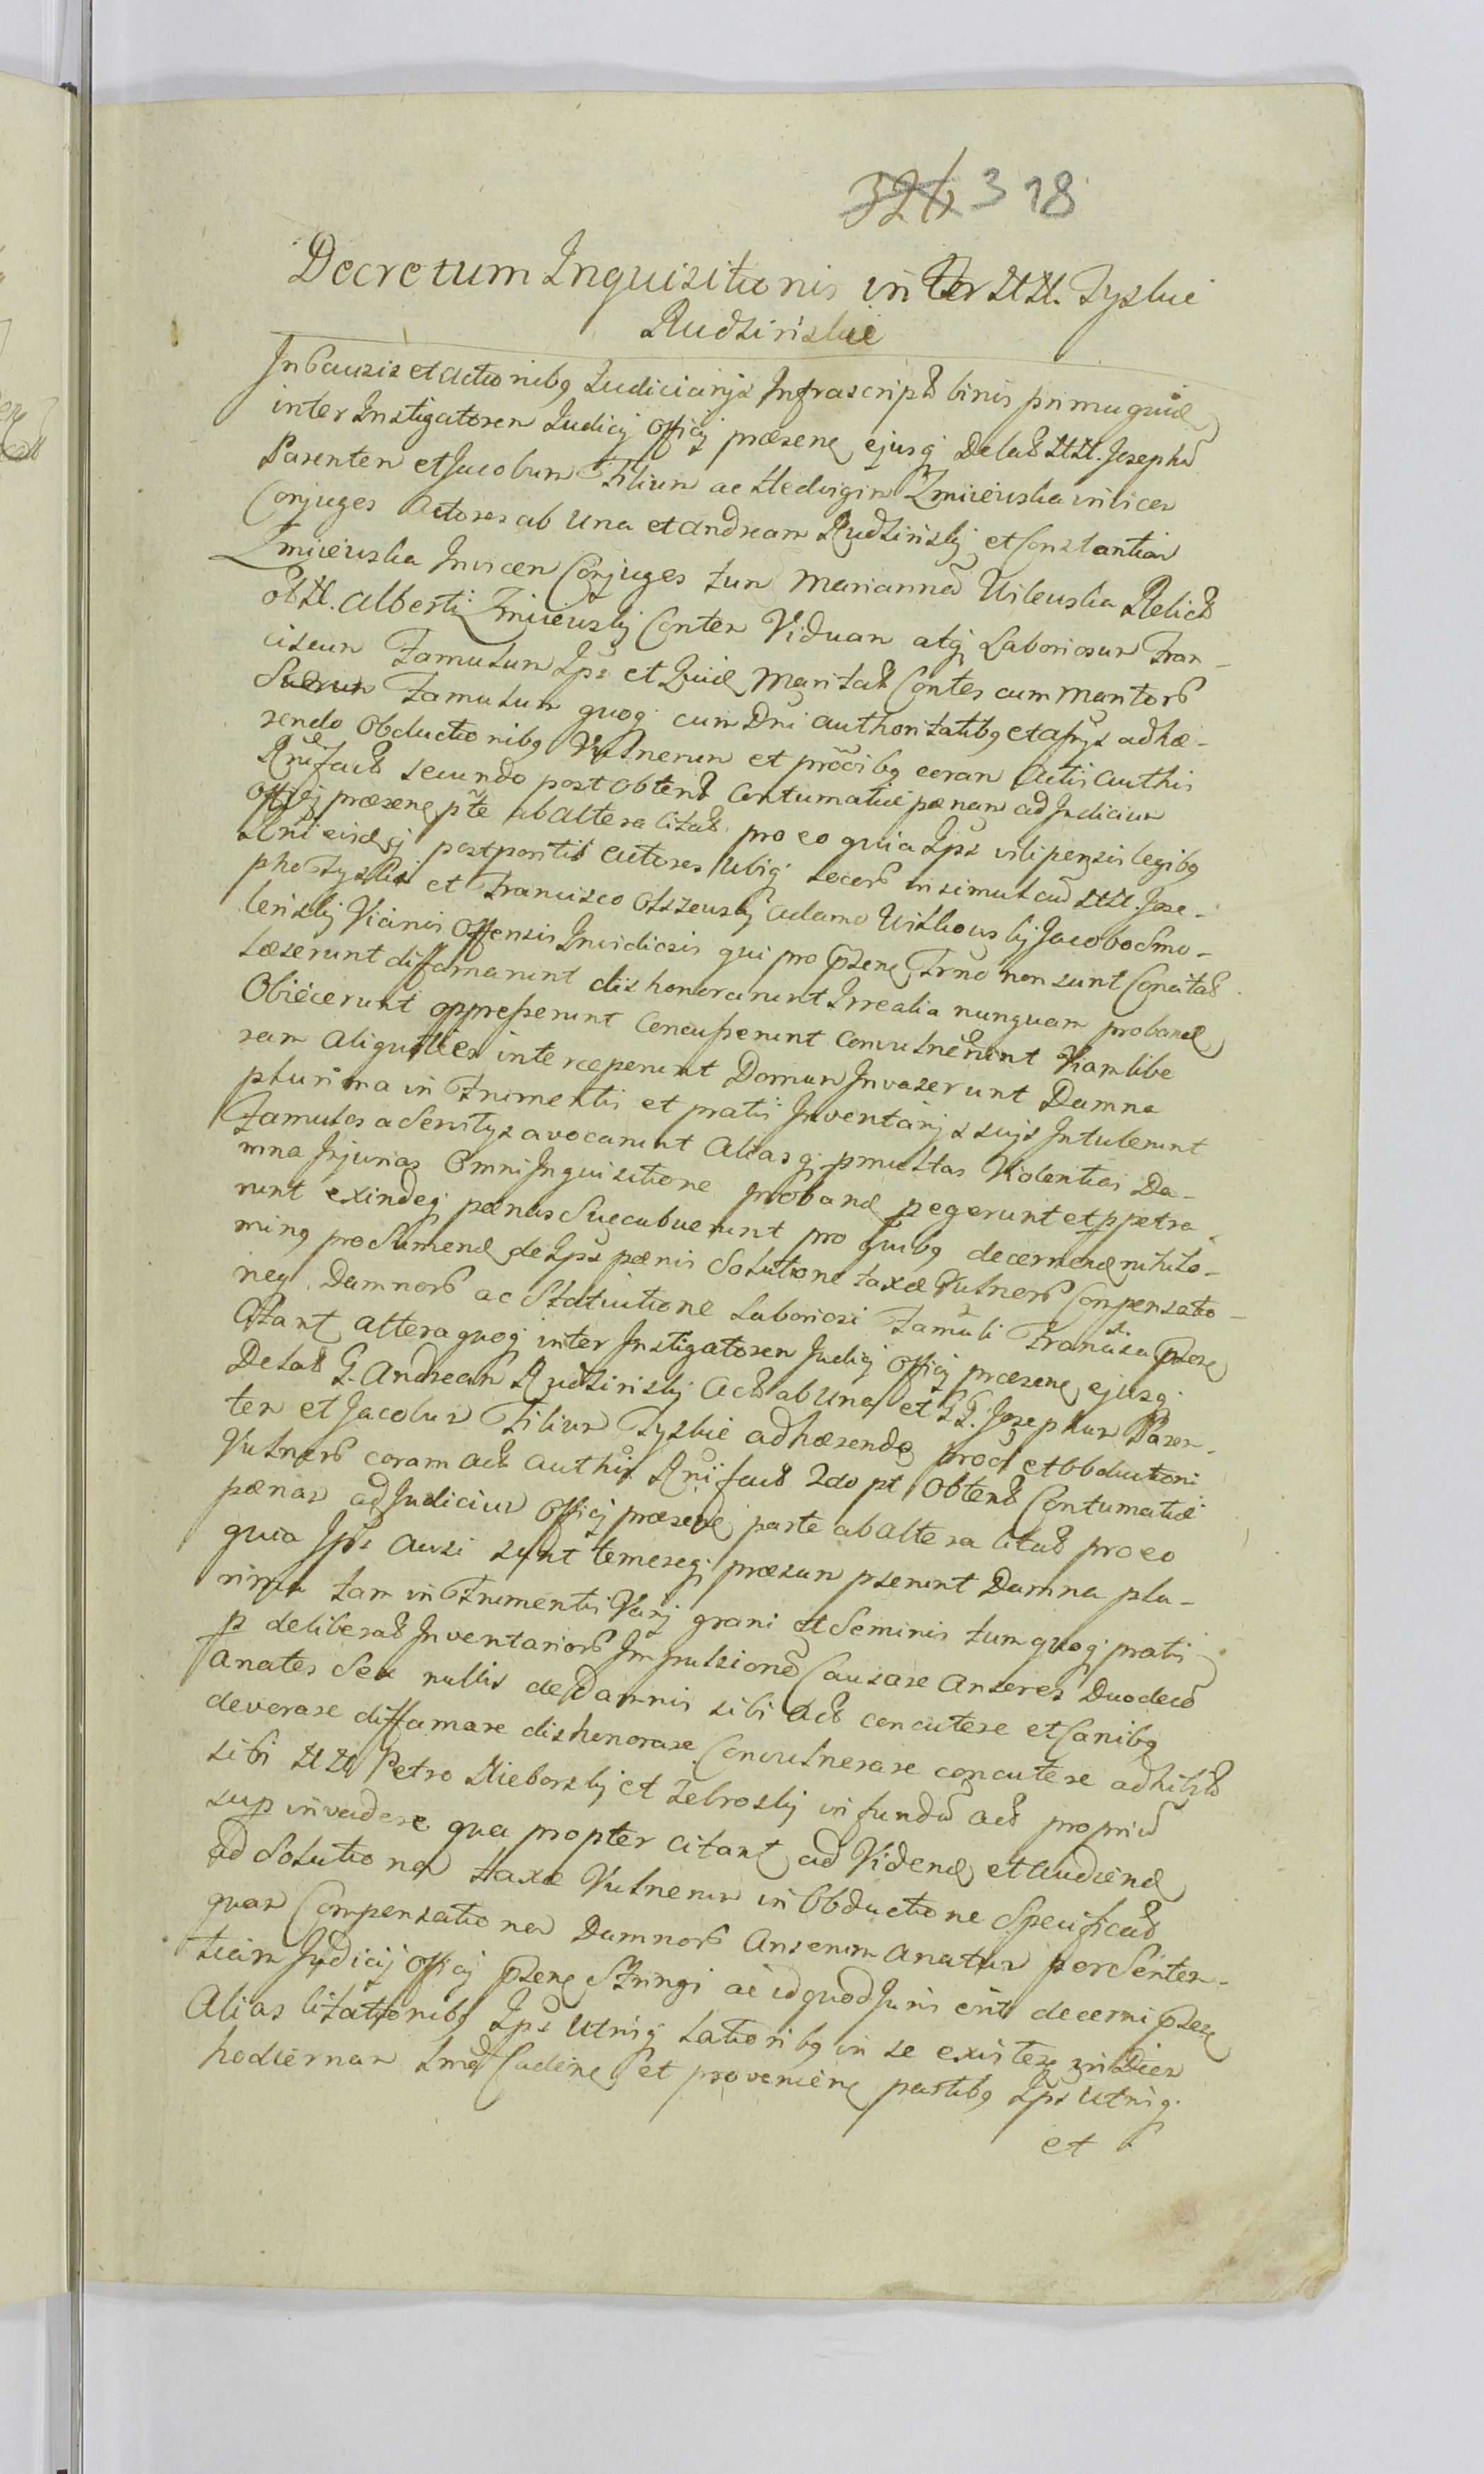 326 318
Decretum Inquisitionis inter NN. Tyszkie
Rudzinskie
In Causis et Actionibq Judiciarijs Infrascript binis prima quid
inter Instigatorem Judicij Officij præsenę ejusq Delat NN. Josephū
Parentem et Jacobum Filium ac Hedvigim Zmiiewska invicem
Conjuges Actores ab una et Andream Rudzinskij et Constantiam
Zmiiewska Invicem Conjuges tum Mariannā Wilewska Relict
ol N. Alberti Zmiiewskij Conten Viduam atq Laboriosum Fran-
ciscum Famulum Ips et quid Maritat Contes cum Maritorſ
Famulum quoq cum Dni authoritatibq et assys adhæ-
rendo Obductionibq Vulnerum et procoibq coram Actis authis
fact secundo post obtent Contumatiæ pænam ad Judicium
Officij præsenę pte ab altera citat pro eo quia Ips vilipensis legibq
Rni eisdq postpositis Actores ubiq locorſ insimul cū NN. Jose-
pho Tyszkis et Francisco Olszewskij Adamo Witkowskij Jacobo Smo-
lenskij Vicinis Offensis Invidiosis qui pro pseng Trno non sunt Concitat
Læserunt diffamarunt dishonorarunt Irrealia nunquam proband
Obiecerunt oppresserunt Concusserunt Convulnerunt Viam libe
ram aliquoties interceperunt Domum Invaserunt Damna
plurima in Frumentis et pratis Inventarijs suijs Intulerunt
Famulos a Servitys avocarunt Aliasq pmultas Violentias Da-
mna Injurias Omni Inquisitione proband pegerunt et ppetra-
runt exindeq pænas Succubuerunt pro quibq decernend nihilo-
minq pro Sumend de Ips pænis Solutione taxæ Vulnerſ Conpensatio-
neq Damnorſ ac Statuitione Laboriosi Famuli Francisci psenę
Citant altera quoq inter Instigatorem Judicij Officij præsenę ejusq
Delat G. Andream Rudzinskij Act ab una et GG. Josephum Paren-
tem et Jacobum Filium Tyszkie adhærendo proco et Obductioni
Vulnerſ coram act authis Rni fact 2do pt Obtent Contumatiæ
pænam ad Judicium Officij præsenę parte ab altera citat pro eo
quia Ips ausi sunt temereq præsumpserunt Damna plu-
rima tam in Frumentis Varij grani et Seminis tum quoq pratis
p deliberat Inventariorſ Impulsionē Causare Anseres Duodecī
Anates Sex nullis de Damnis sibi Act concutere et Canibq
devorare diffamare dishonorare Convulnerare concutere adhibit
sibi NN Petro Nieborskij et Zebroskij in fundū Act propriū
sup invadere qua propter citant ad Videnđ et Audiend
ad Solutionem taxæ Vulnerum in Obductione Specificat
quam Compensationem Damnorſ Anserum Anatum per Senten-
tiam Judicij Officij psenę Stringi ac id quod Juris erit decerni psenę
Alias Citationibq Ips utriq lationibq in se existenę in Diem
hodiernam Cadenę et provenienę partibq Ips utriq
et